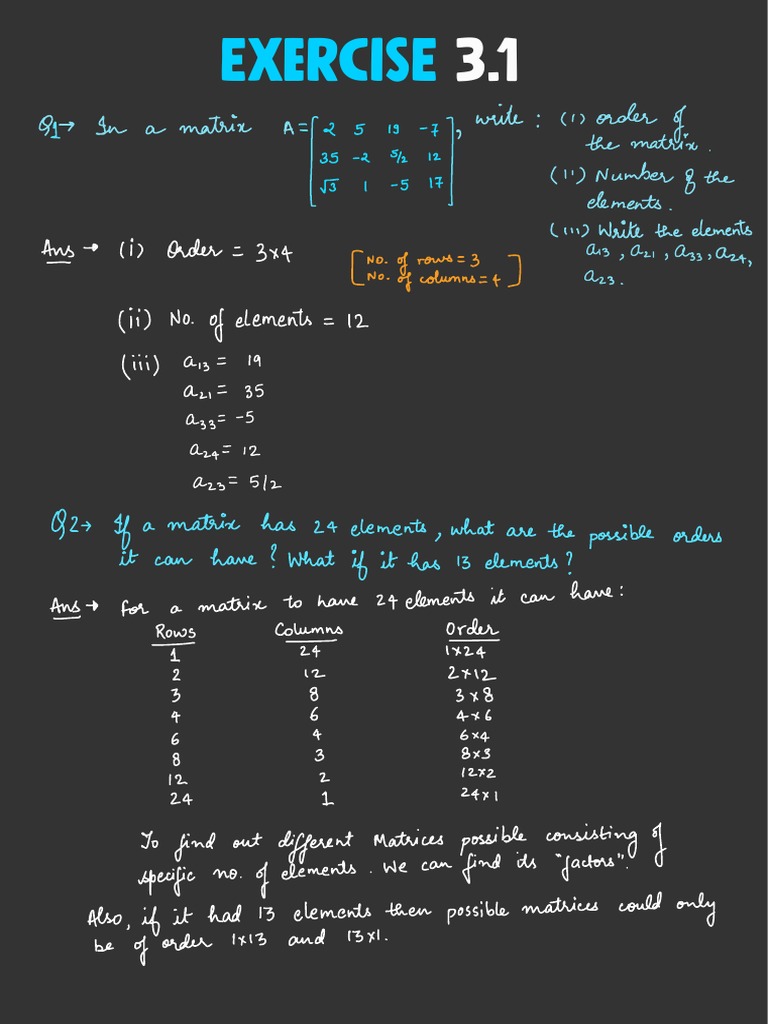 EXERCISE 3.1
Q1→ In a matrix A = [ 2 5 19 -7 , write : (i) order of
35 -2 5/2 12 the matrix.
√3 1 -5 17 ] (ii) Number of the
elements.
(iii) Write the elements
a13, a21, a33, a24,
a23.
Ans → (i) Order = 3×4
[No. of rows = 3
No. of columns = 4]
(ii) No. of elements = 12
(iii) a13 = 19
a21 = 35
a33 = -5
a24 = 12
a23 = 5/2
Q2→ If a matrix has 24 elements, what are the possible orders
it can have? What if it has 13 elements?
Ans → for a matrix to have 24 elements it can have:
Rows Columns Order
1 24 1×24
2 12 2×12
3 8 3×8
4 6 4×6
6 4 6×4
8 3 8×3
12 2 12×2
24 1 24×1
To find out different Matrices possible consisting of
specific no. of elements. We can find its "factors".
Also, if it had 13 elements then possible matrices could only
be of order 1×13 and 13×1.